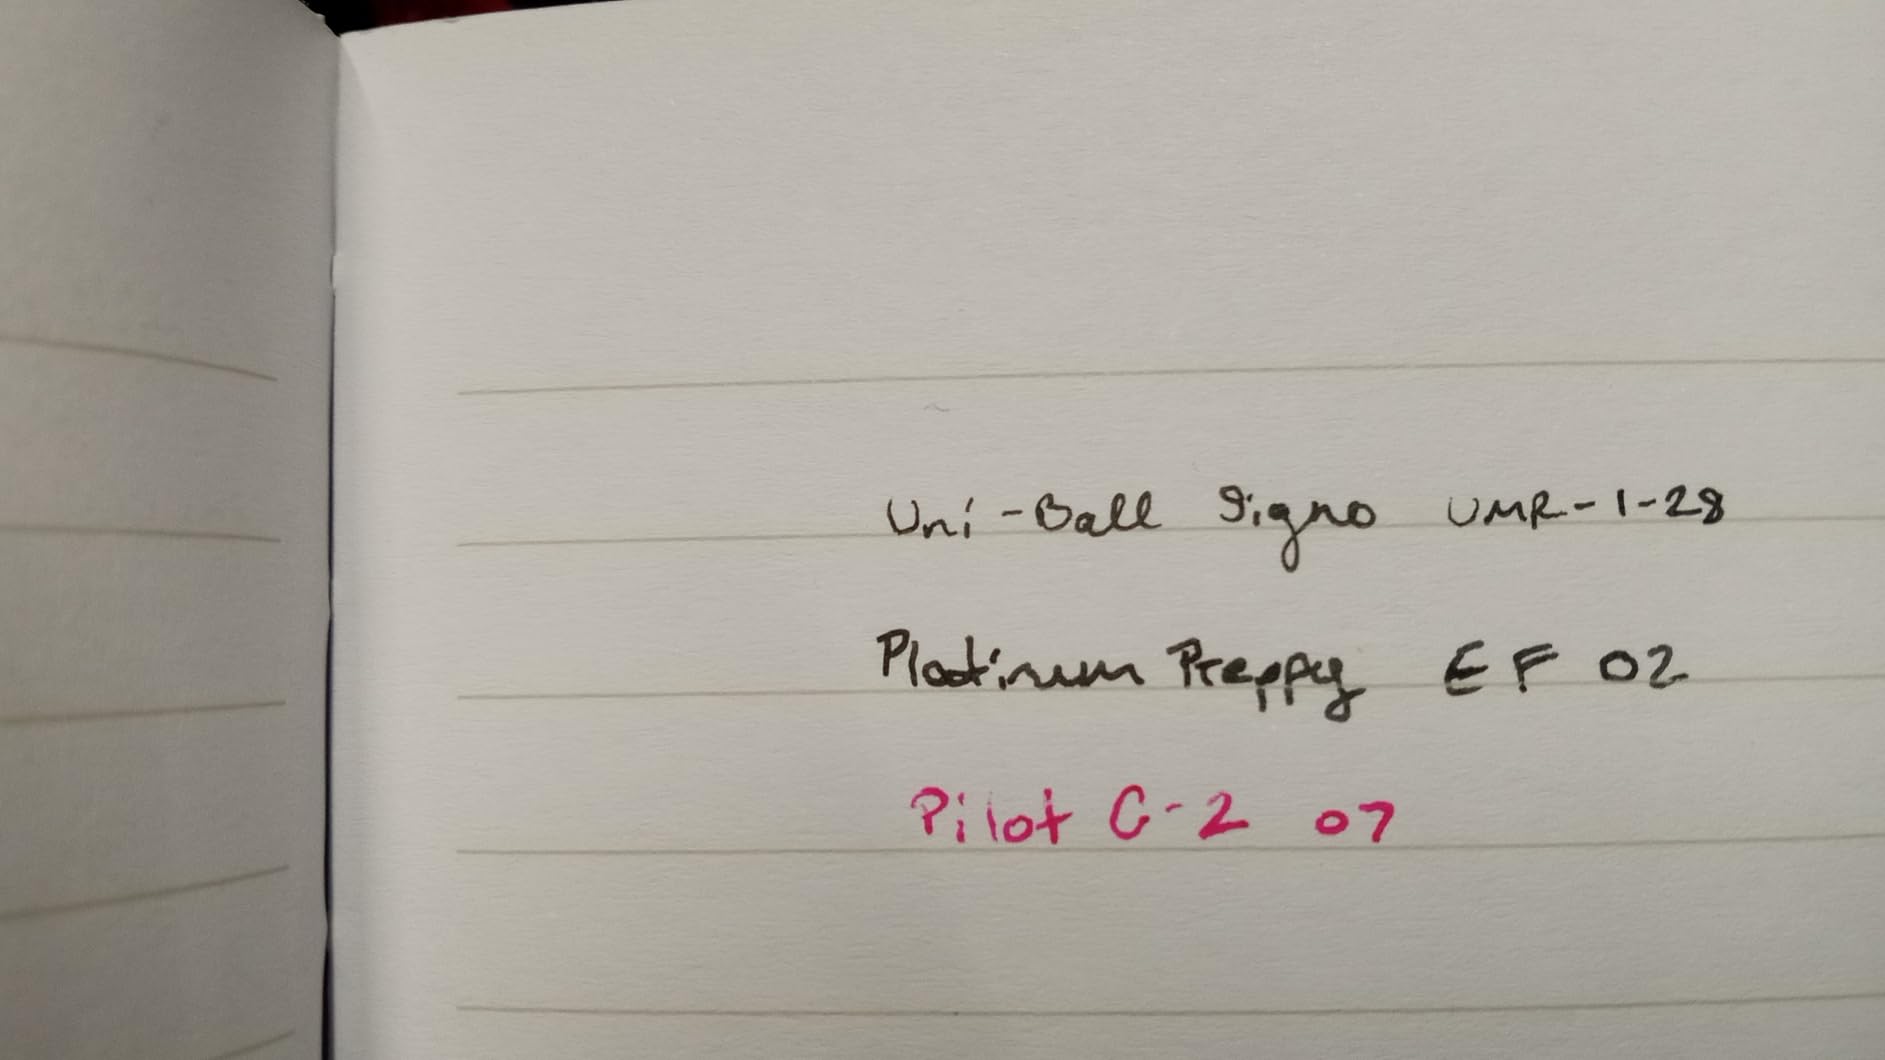 Uni-Ball Signo UMR-1-28
Platinum Preppy EF 02
Pilot G-2 07